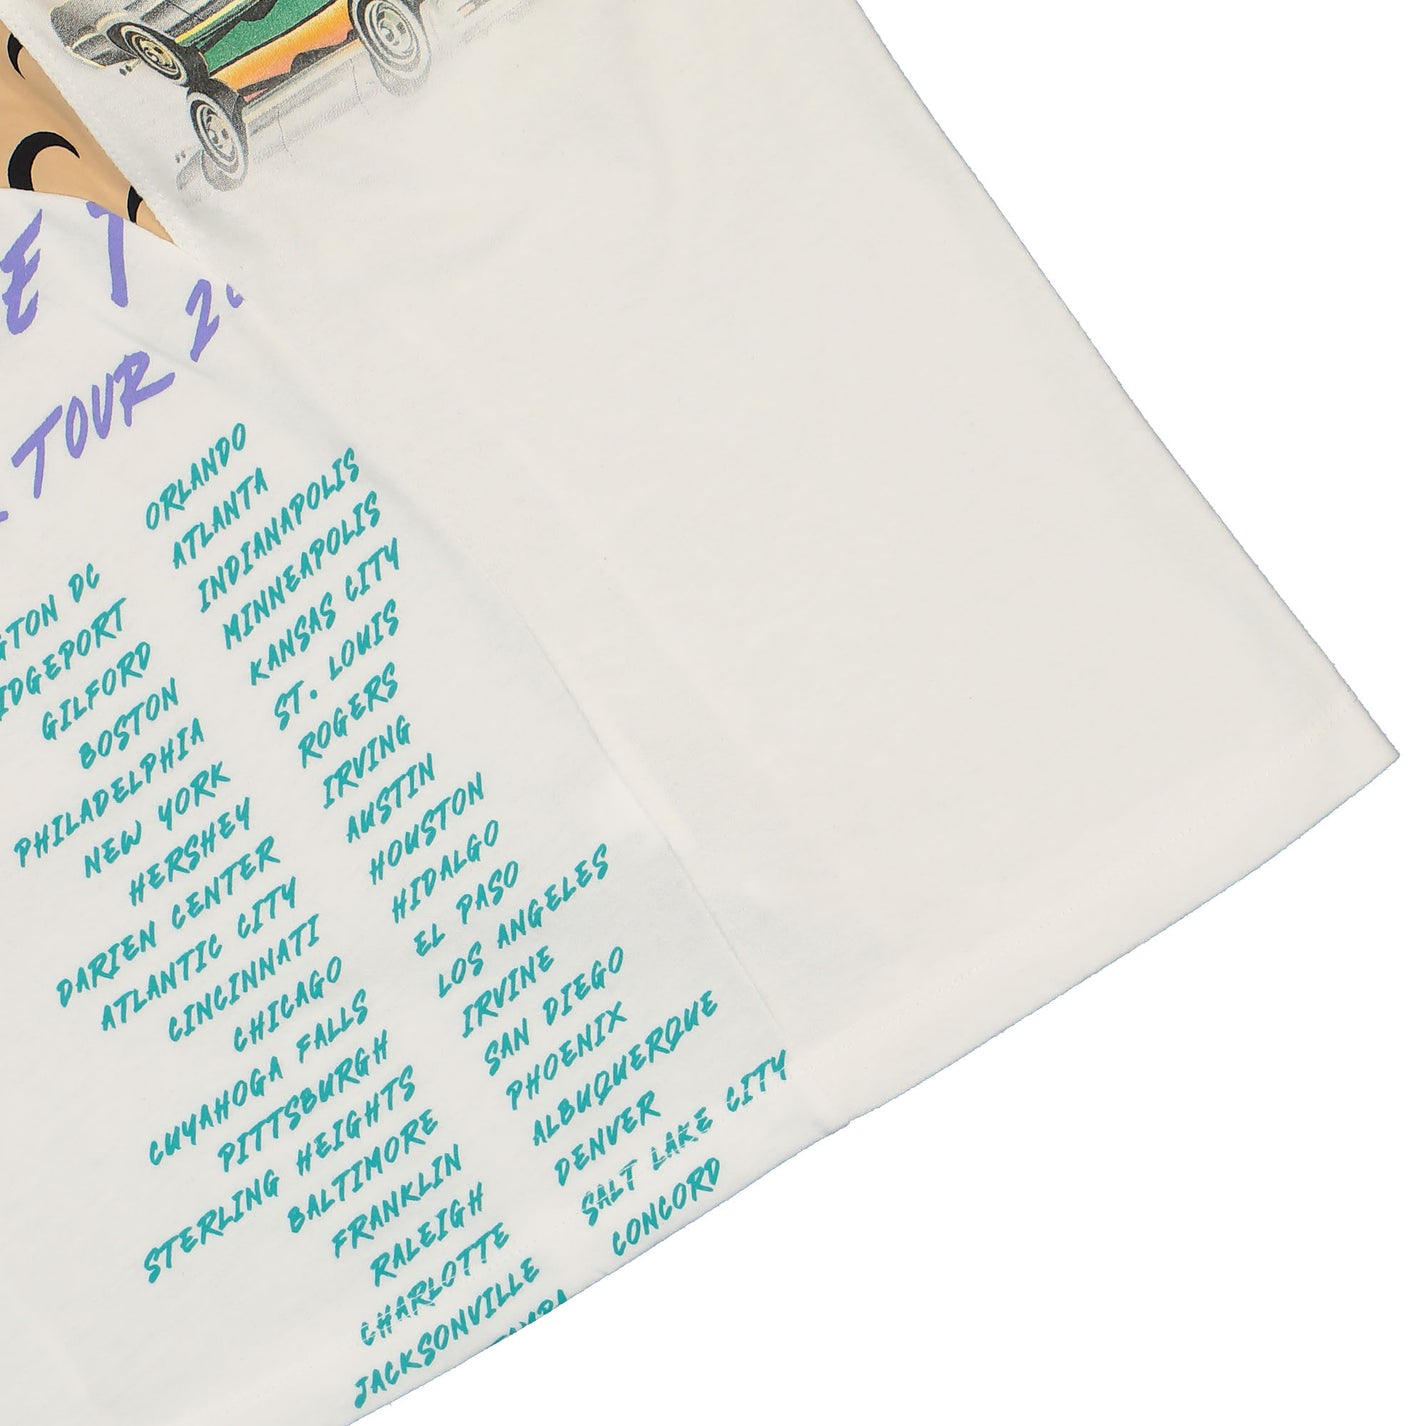 E T
TOUR 20
GTON DC
IDGEPORT
GILFORD
BOSTON
PHILADELPHIA
NEW YORK
HERSHEY
DARIEN CENTER
ATLANTIC CITY
CINCINNATI
CHICAGO
CUYAHOGA FALLS
PITTSBURGH
STERLING HEIGHTS
BALTIMORE
FRANKLIN
RALEIGH
CHARLOTTE
JACKSONVILLE
ORLANDO
ATLANTA
INDIANAPOLIS
MINNEAPOLIS
KANSAS CITY
ST. LOUIS
ROGERS
IRVING
AUSTIN
HOUSTON
HIDALGO
EL PASO
LOS ANGELES
IRVINE
SAN DIEGO
PHOENIX
ALBUQUERQUE
DENVER
SALT LAKE CITY
CONCORD